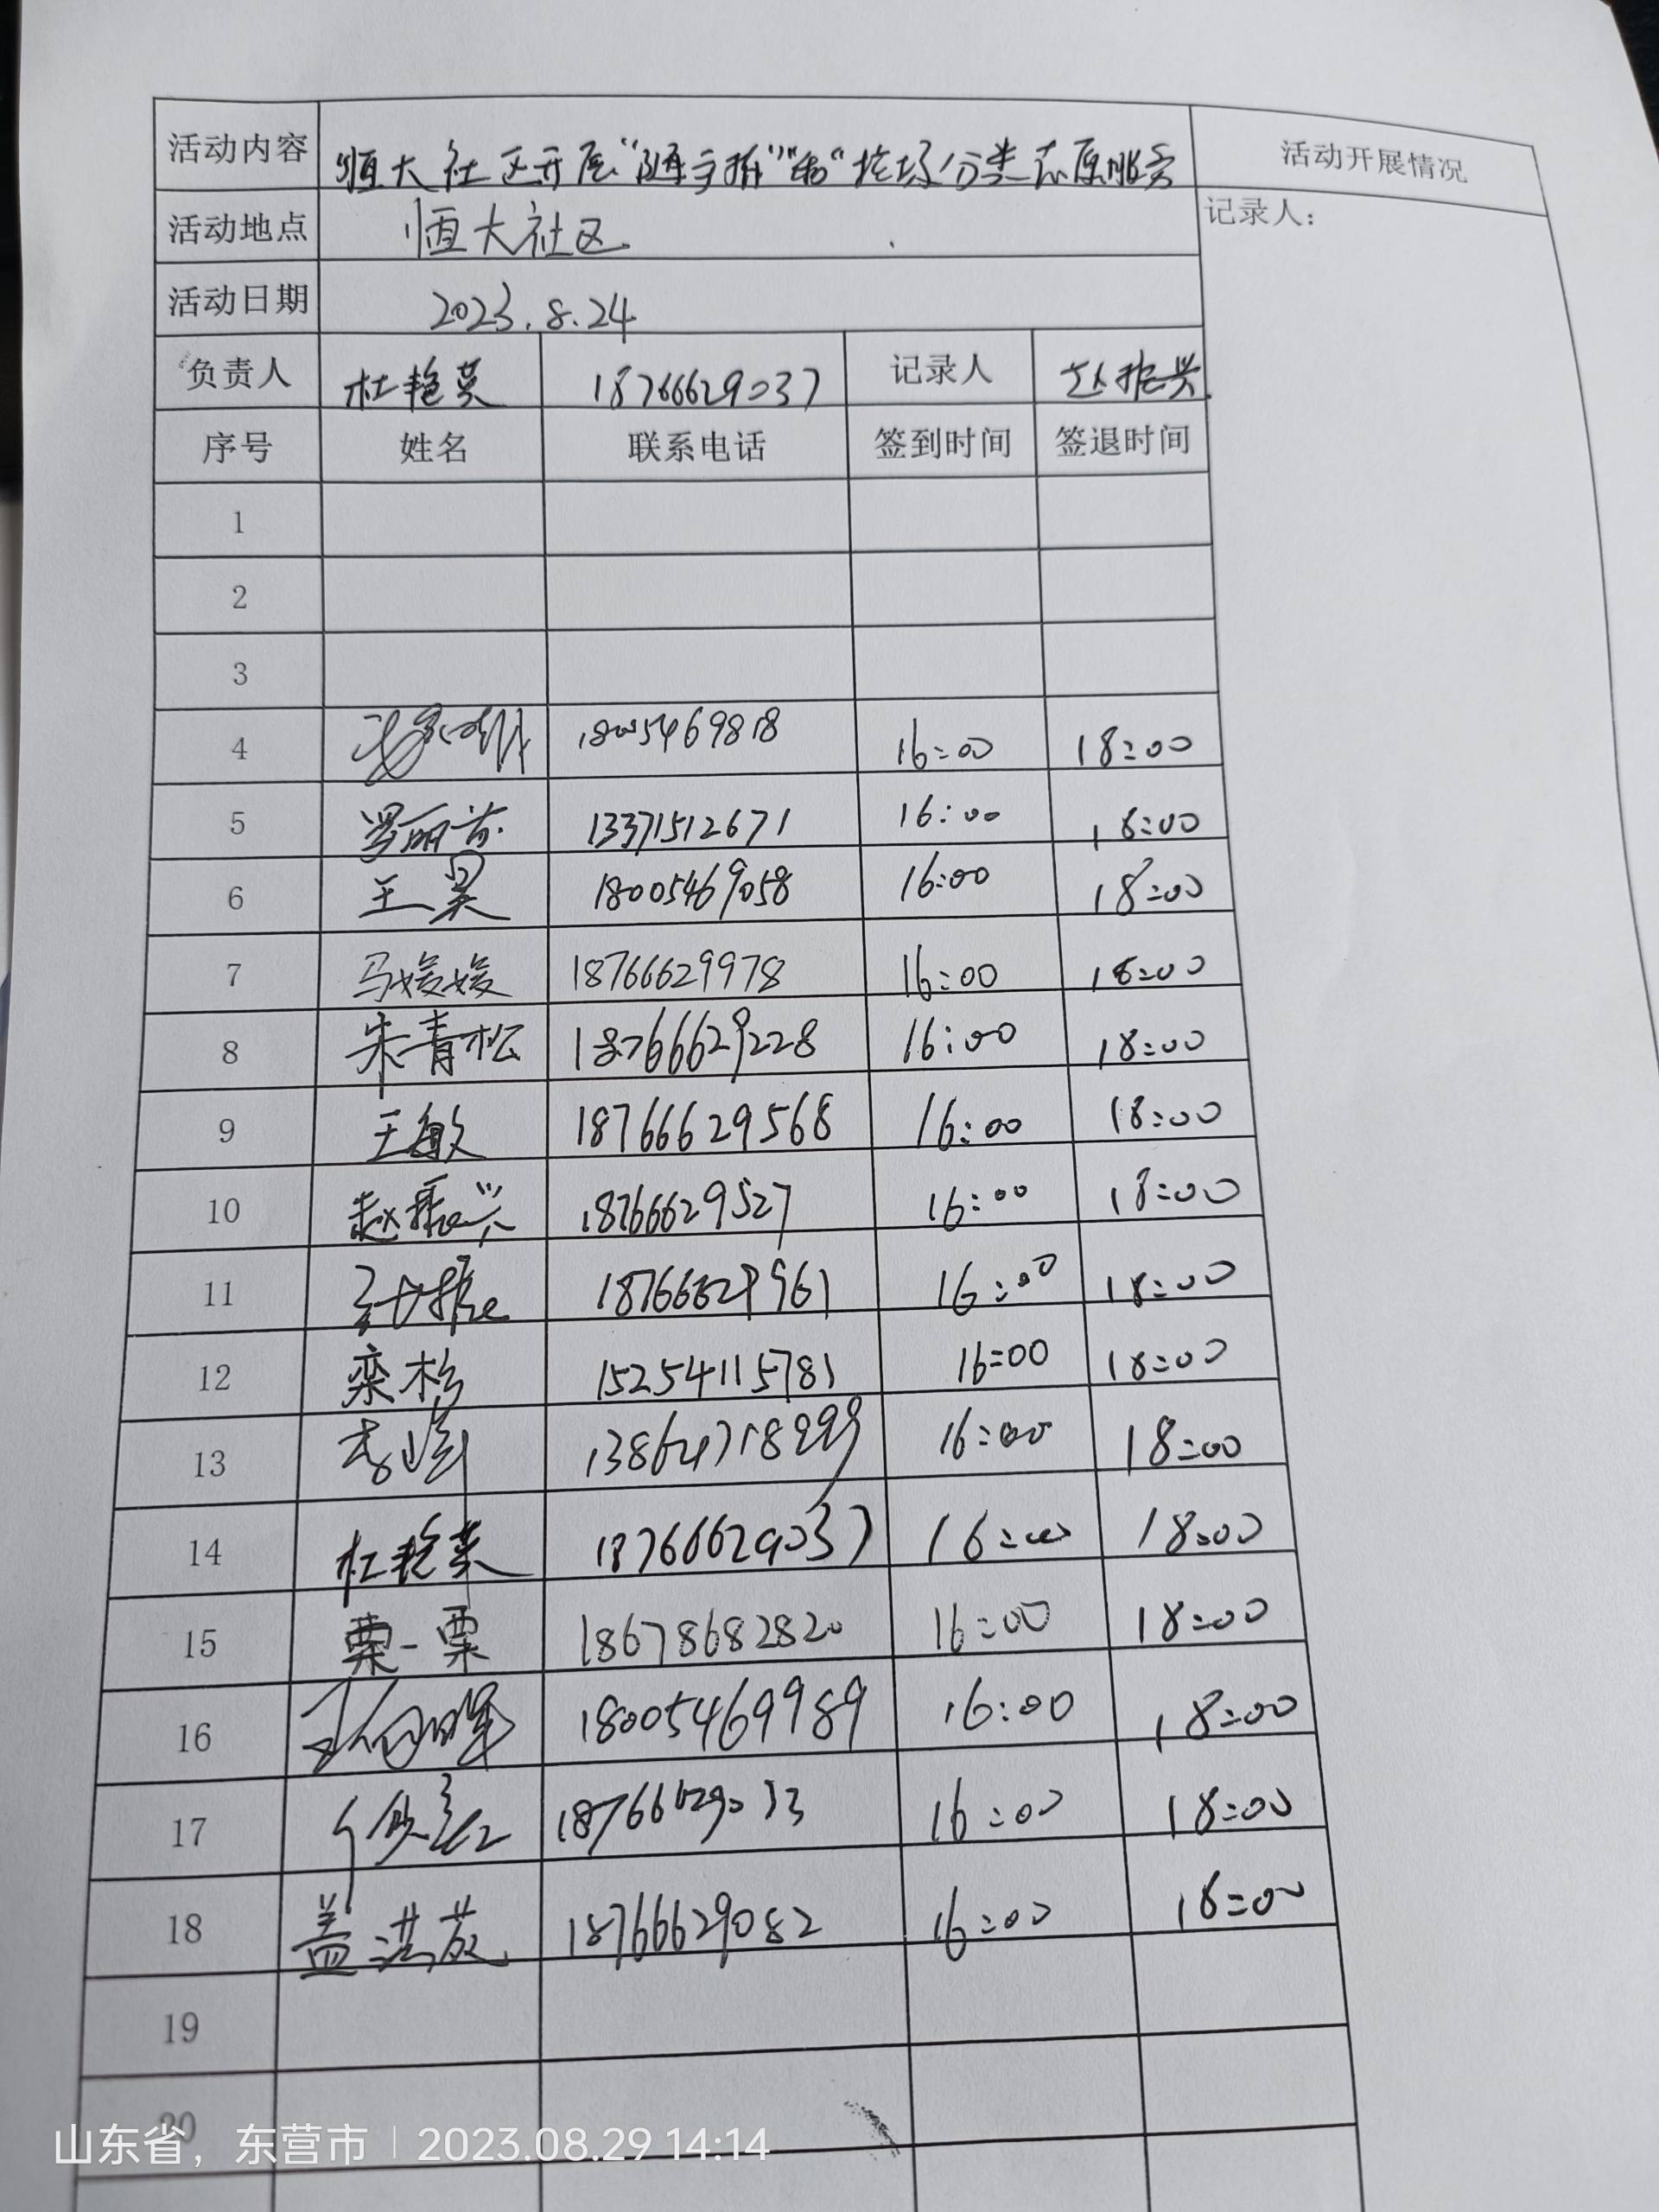 活动内容 恒大社区开展"随手拍" 垃圾分类志愿服务 活动开展情况
活动地点 恒大社区 记录人：
活动日期 2023.8.24
负责人 杜艳英 18766629037 记录人 赵振兴
序号 姓名 联系电话 签到时间 签退时间
1
2
3
4 18005469818 16:00 18:00
5 13371512671 16:00 18:00
6 王昊 18005469058 16:00 18:00
7 马媛媛 18766629978 16:00 18:00
8 朱青松 18766629228 16:00 18:00
9 王敏 18766629568 16:00 18:00
10 赵振兴 18766629527 16:00 18:00
11 18766629961 16:00 18:00
12 栾杉 15254115781 16:00 18:00
13 16:00 18:00
14 杜艳英 18766629037 16:00 18:00
15 栗一栗 18678682820 16:00 18:00
16 18005469989 16:00 18:00
17 18766629033 16:00 18:00
18 盖洪 18766629082 16:00 18:00
19
20
山东省，东营市 | 2023.08.29 14:14